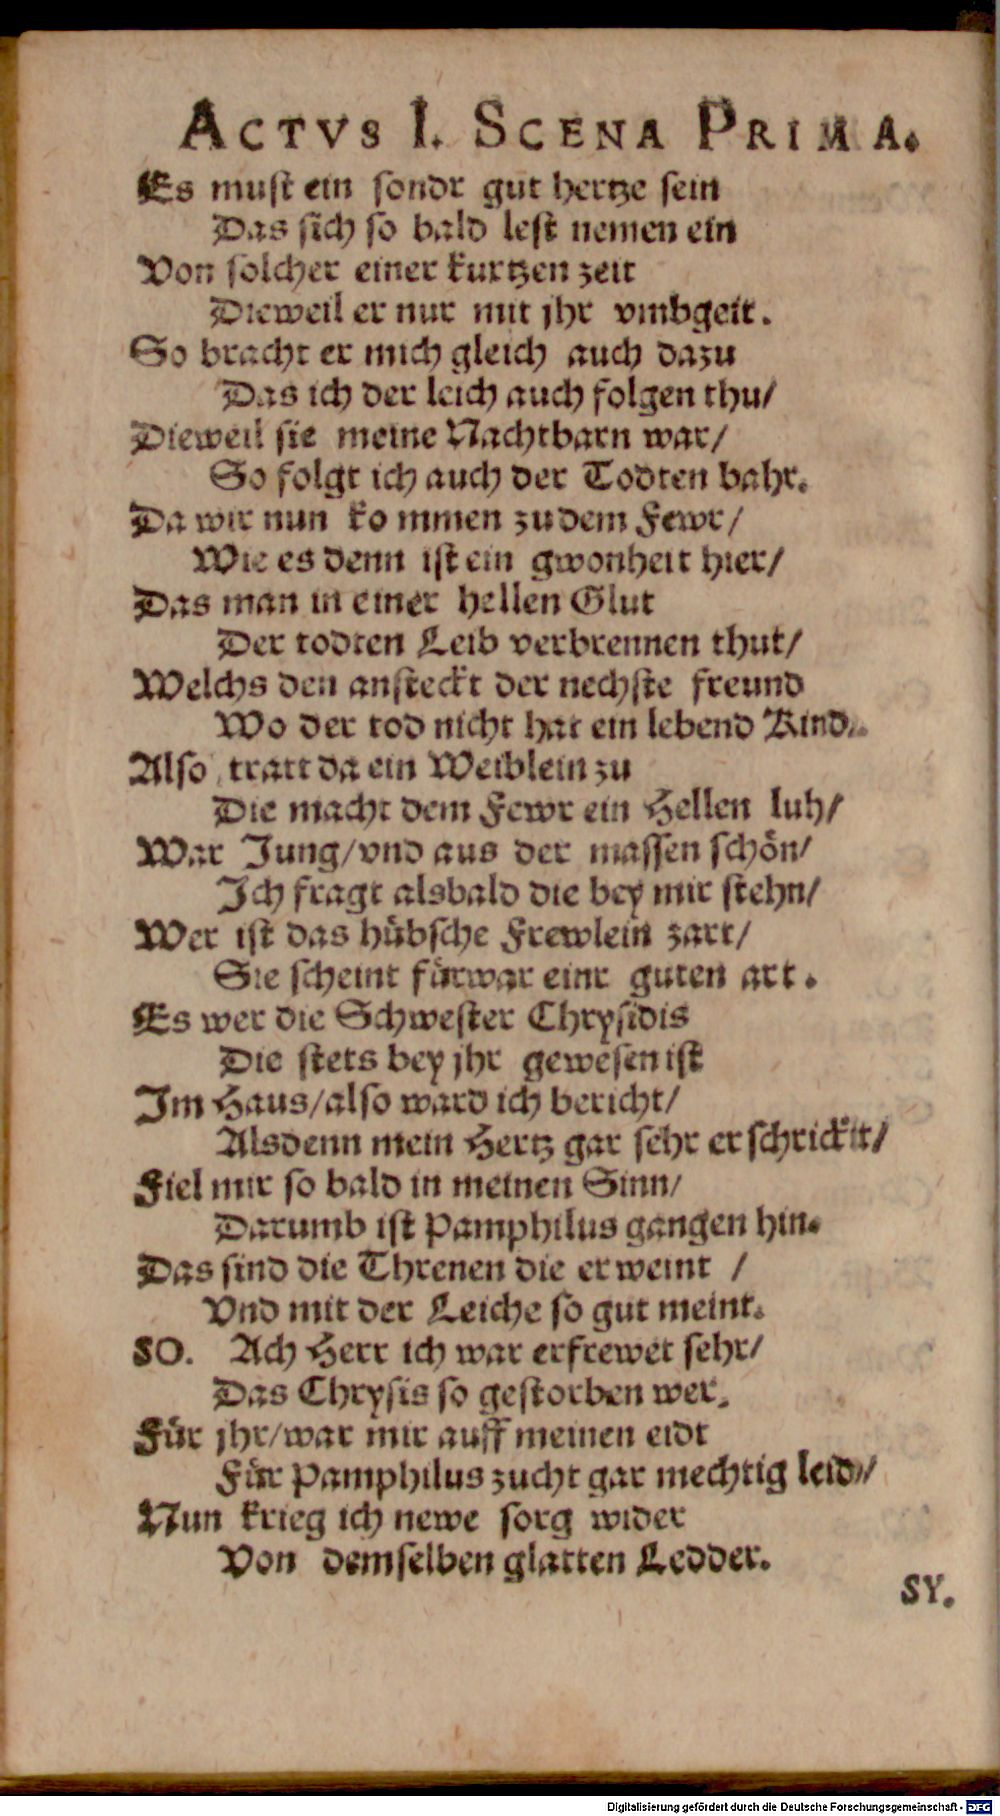 ACTVS I. SCENA PRIMA.
Es must ein sondr gut hertze sein
Das sich so bald lest nemen ein
Von solcher einer kurtzen zeit
Dieweil er nur mit jhr vmbgeit.
So bracht er mich gleich auch dazu
Das ich der leich auch folgen thu/
Dieweil sie meine Nachtbarn war/
So folgt ich auch der Todten bahr.
Da wir nun ko mmen zu dem Fewr/
Wie es denn ist ein gwonheit hier/
Das man in einer hellen Glut
Der todten Leib verbrennen thut/
Welchs den ansteckt der nechste freund
Wo der tod nicht hat ein lebend Kind.
Also tratt da ein Weiblein zu
Die macht dem Fewr ein Hellen luh/
War Jung/vnd aus der massen schön/
Ich fragt alsbald die bey mir stehn/
Wer ist das hübsche Frewlein zart/
Sie scheint fürwar einr guten art.
Es wer die Schwester Chrysidis
Die stets bey jhr gewesen ist
Im Haus/also ward ich bericht/
Alsdenn mein Hertz gar sehr er schrickt/
Fiel mir so bald in meinen Sinn/
Darumb ist Pamphilus gangen hin.
Das sind die Threnen die er weint /
Vnd mit der Leiche so gut meint.
SO. Ach Herr ich war erfrewet sehr/
Das Chrysis so gestorben wer.
Für jhr/war mir auff meinen eidt
Für Pamphilus zucht gar mechtig leid/
Nun krieg ich newe sorg wider
Von demselben glatten Ledder.
SY.
Digitalisierung gefördert durch die Deutsche Forschungsgemeinschaft - DFG